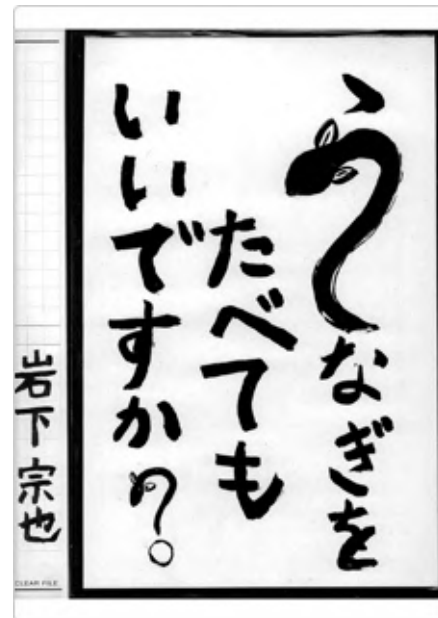 うなぎを
たべても
いいですか?
岩下宗也
CLEAR FILE